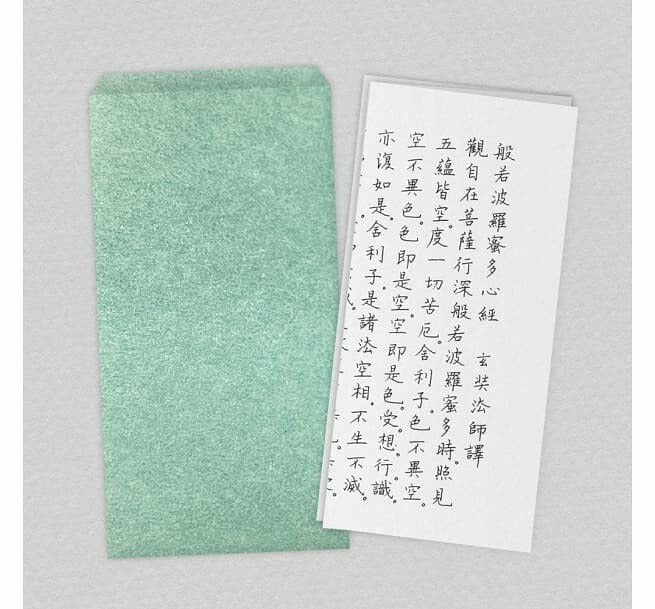 般若波羅蜜多心經 玄奘法師譯
觀自在菩薩行深般若波羅蜜多時。照見
五蘊皆空。度一切苦厄。舍利子。色不異空。
空不異色。色即是空。空即是色。受。想。行。識。
亦復如是。舍利子。是諸法空相。不生不滅。